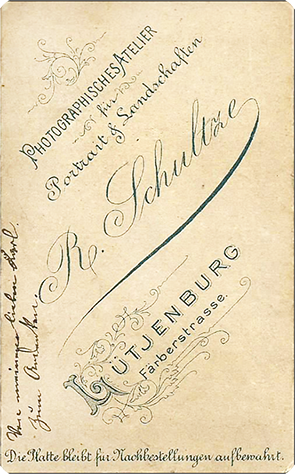 Photographisches Atelier
für
Portrait & Landschaften
R. Schultze
Lütjenburg
Färberstrasse.
Von meinem lieben Karl.
Zum Andenken.
Die Platte bleibt für Nachbestellungen aufbewahrt.